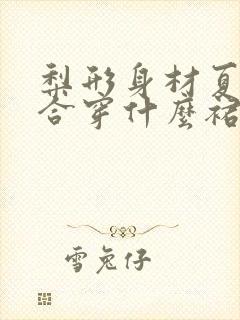 梨形身材夏
合穿什麼裙
雪兔仔